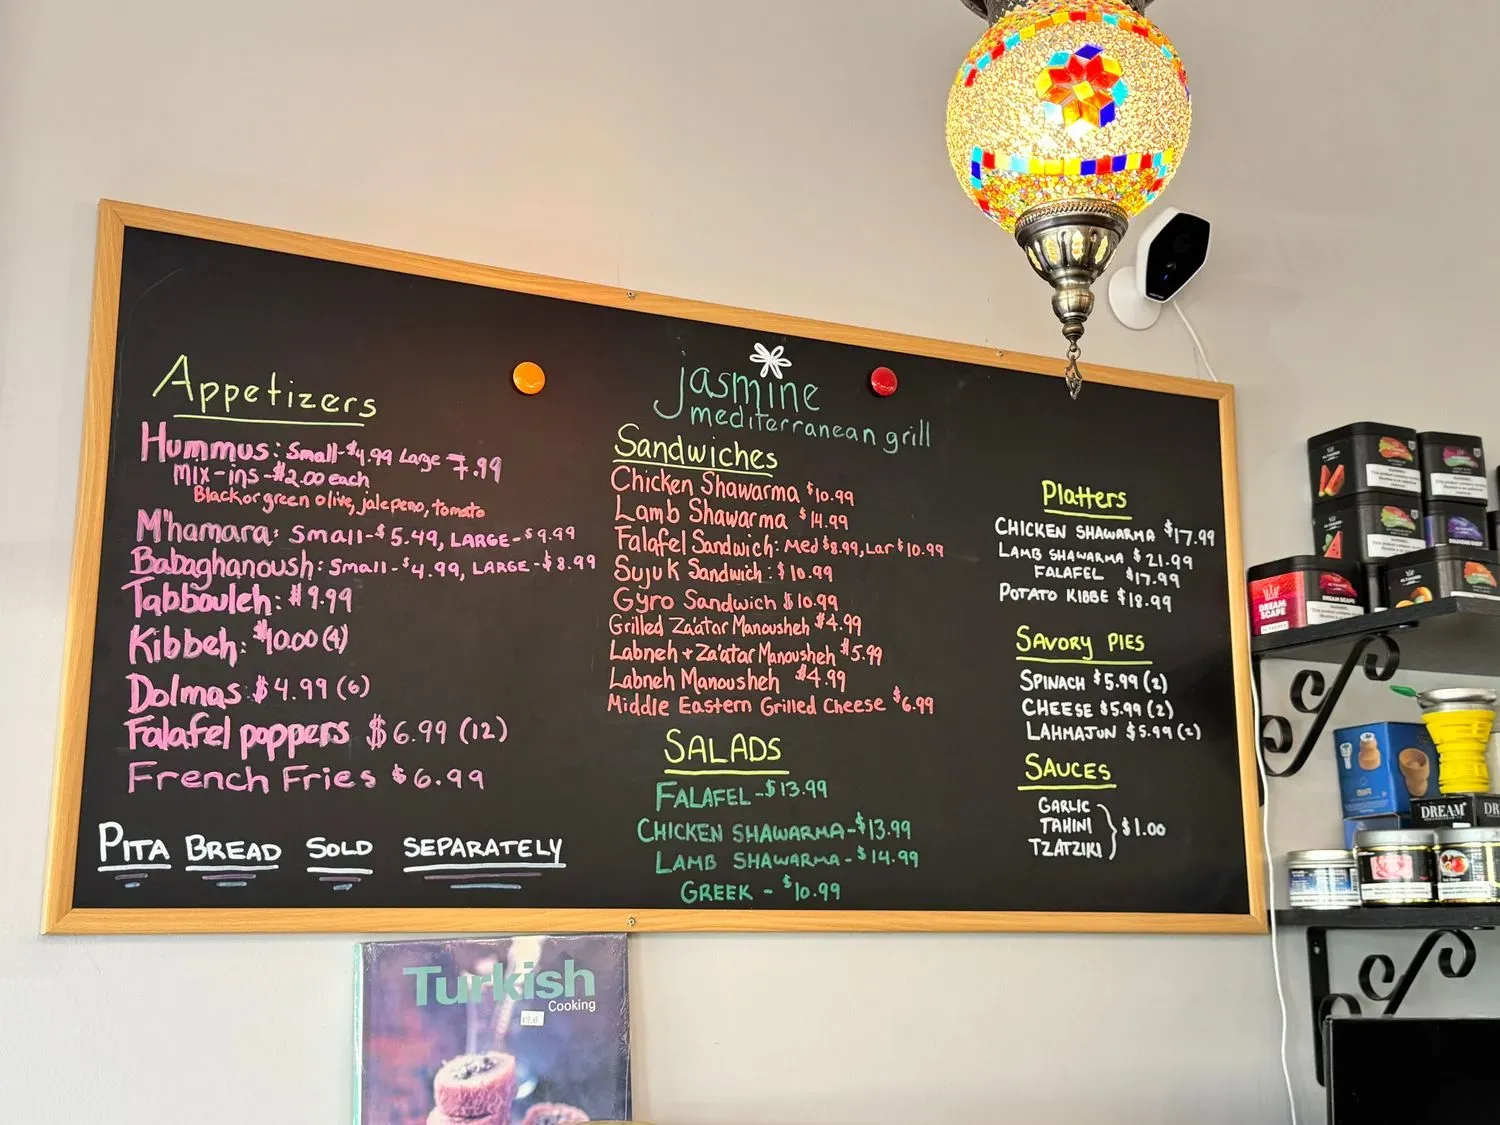 Appetizers
Hummus: Small-$4.99 Large 7.99
Mix-ins-$2.00 each
Black or green olive, jalepeno, tomato
M'hamara: Small-$5.49, LARGE-$9.99
Babaghanoush: Small-$4.99, LARGE-$8.99
Tabbouleh: $9.99
Kibbeh: $10.00 (4)
Dolmas $4.99 (6)
Falafel poppers $6.99 (12)
French Fries $6.99
PITA BREAD SOLD SEPARATELY
jasmine
mediterranean grill
Sandwiches
Chicken Shawarma $10.99
Lamb Shawarma $14.99
Falafel Sandwich: Med $8.99, Lar $10.99
Sujuk Sandwich: $10.99
Gyro Sandwich $10.99
Grilled Za'atar Manousheh $4.99
Labneh + Za'atar Manousheh $5.99
Labneh Manousheh $4.99
Middle Eastern Grilled Cheese $6.99
SALADS
FALAFEL-$13.99
CHICKEN SHAWARMA-$13.99
LAMB SHAWARMA-$14.99
GREEK - $10.99
Platters
CHICKEN SHAWARMA $17.99
LAMB SHAWARMA $21.99
FALAFEL $17.99
POTATO KIBBE $18.99
SAVORY PIES
SPINACH $5.99 (2)
CHEESE $5.99 (2)
LAHMAJUN $5.99 (2)
SAUCES
GARLIC
TAHINI
TZATZIKI
$1.00
Turkish
Cooking
DREAM SCAPE
DREAM